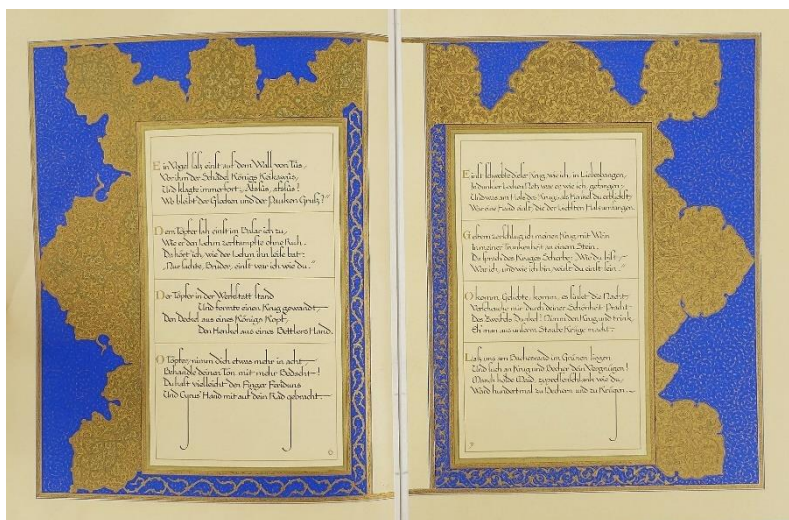 Ein Vogel saß einst auf dem Wall von Tûs,
Vor ihm der Schädel Königs Keikawûs,
Und klagte immerfort: „Afsûs, afsûs!
Wo bleibt der Glocken und der Pauken Gruß?"
Dem Töpfer sah einst im Basar ich zu,
Wie er den Lehm zerstampfte ohne Ruh.
Da hört' ich, wie der Lehm ihn leise bat:
„Nur sachte, Bruder, einst war ich wie du."
Der Töpfer in der Werkstatt stand
Und formte einen Krug gewandt,
Den Deckel aus eines Königs Kopf,
Den Henkel aus eines Bettlers Hand.
O Töpfer, nimm dich etwas mehr in acht,
Behandle deinen Ton mit mehr Bedacht!
Du hast vielleicht den Finger Feriduns
Und Cyrus' Hand mit auf dein Rad gebracht.
Einst schwebte dieser Krug, wie ich, in Liebesbangen,
In dunkler Locken Netz war er, wie ich, gefangen.
Und was am Hals des Krugs als Henkel du erblickst,
War eine Hand einst, die der Liebsten Hals umfangen.
Gestern zerschlug ich meinen Krug mit Wein
In meiner Trunkenheit an einem Stein.
Da sprach des Kruges Scherbe: „Wie du bist,
War ich, und wie ich bin, wirst du einst sein."
O komm, Geliebte, komm, es sinkt die Nacht,
Verscheuche mir durch deiner Schönheit Pracht
Des Zweifels Dunkel! Nimm den Krug und trink,
Eh' man aus unserm Staube Krüge macht.
Laß uns am Bachesrand im Grünen liegen
Und such an Krug und Becher dein Vergnügen!
Manch holde Maid, zypressenschlank wie du,
Ward hundertmal zu Bechern und zu Krügen.